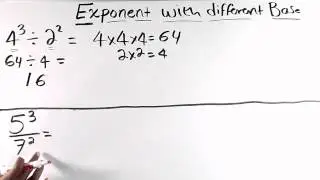 Exponent with different Base
4³ ÷ 2² = 4×4×4=64
64 ÷ 4 = 2×2=4
16
5³
7² =